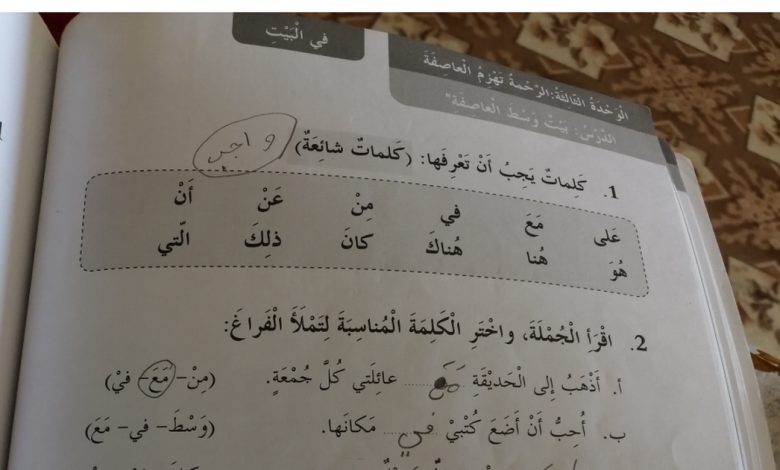 في الْبَيْتِ
الْوَحْدَةُ الثّالِثَةُ: الرَّحْمةُ تَهْزِمُ الْعاصِفَةَ
الدَّرْسُ: بَيْتٌ وَسْطَ الْعاصِفَةِ"
1. كَلِماتٌ يَجِبُ أَنْ تَعْرِفَها: (كَلماتٌ شائِعَةٌ) واجب
عَلى مَعَ في مِنْ عَنْ أَنْ
هُوَ هُنا هُناكَ كانَ ذلِكَ الّتي
2. اقْرَأِ الْجُمْلَةَ، واخْتَرِ الْكَلِمَةَ الْمُناسِبَةَ لِتَمْلَأَ الْفَراغَ:
أ. أَذْهَبُ إلى الْحَديْقَةِ مع عائِلَتي كُلَّ جُمْعَةٍ. (مِنْ- مَعَ- فيْ)
ب. أُحِبُّ أَنْ أَضَعَ كُتْبيْ في مَكانَها. (وَسْطَ- في- مَعَ)